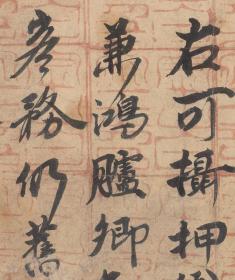 右可攝押
兼鴻臚卿
務仍舊